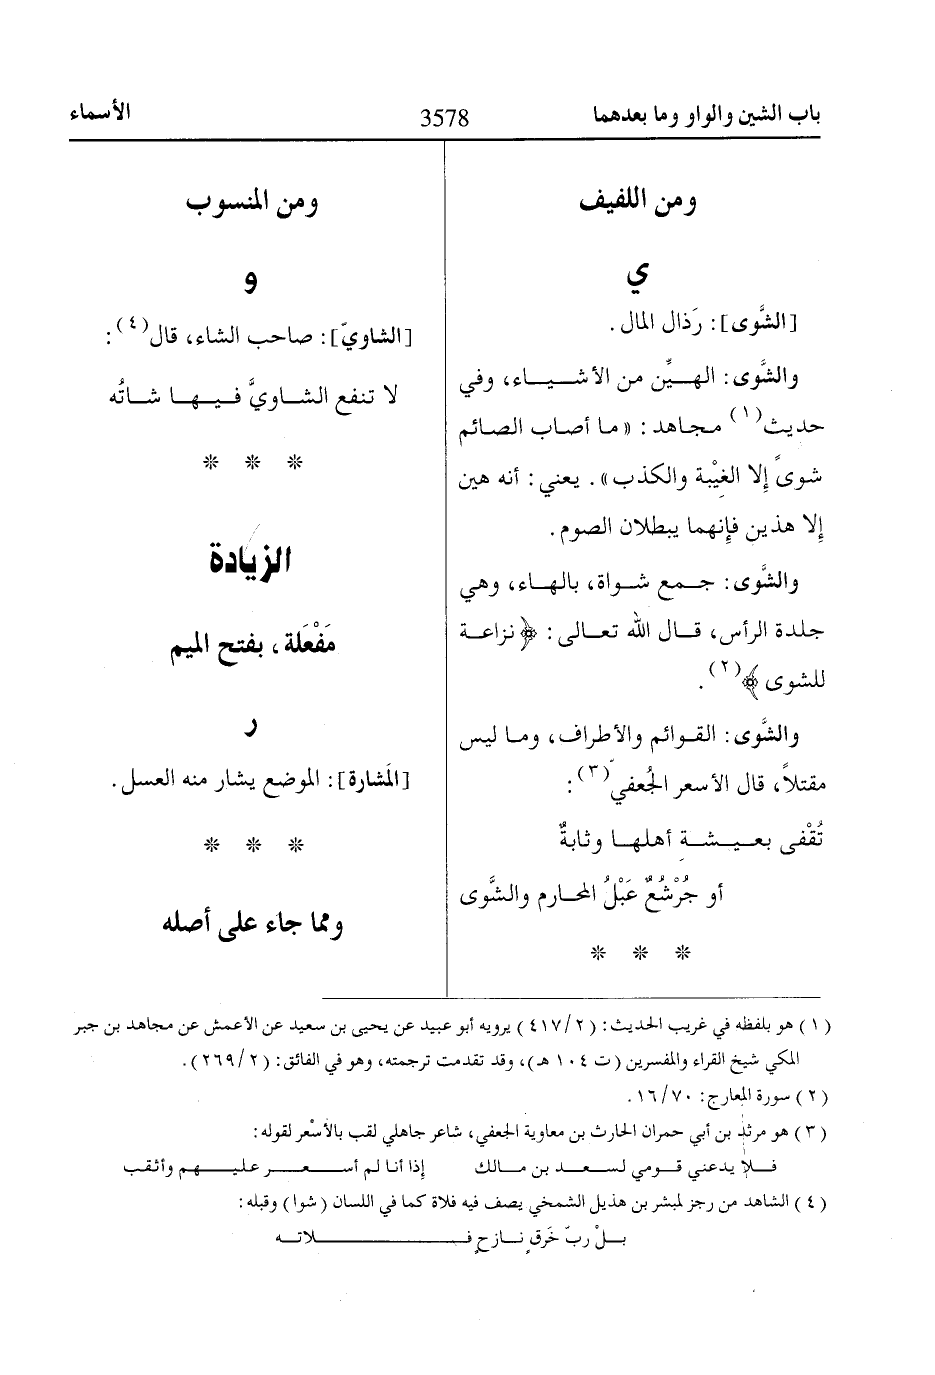 باب الشين والواو وما بعدهما 3578 الأسماء
ومن اللفيف
ي
[الشَّوى]: رَذال المال.
والشَّوى: الهـيِّن من الأشـيـاء، وفي
حديث(١) مجاهد: «ما أصاب الصائم
شوىً إلا الغيْبة والكذب». يعني: أنه هين
إلا هذين فإنهما يبطلان الصوم.
والشَّوى: جمع شواة، بالهاء، وهي
جلدة الرأس، قال الله تعالى: ﴿نزاعة
للشوى﴾(٢).
والشَّوى: القوائم والأطراف، وما ليس
مقتلاً، قال الأسعر الجُعفيّ(٣):
تُقْفى بعيشة أهلها وثابةٌ
أو جُرْشُعٌ عَبْلُ المحارم والشَّوى
* * *
ومن المنسوب
و
[الشاويّ]: صاحب الشاء، قال(٤):
لا تنفع الشاويَّ فيها شاتُه
* * *
الزيادة
مَفْعَلة، بفتح الميم
ر
[المَشارة]: الموضع يشار منه العسل.
* * *
ومما جاء على أصله
(١) هو بلفظه في غريب الحديث: (٢/٤١٧) يرويه أبو عبيد عن يحيى بن سعيد عن الأعمش عن مجاهد بن جبر
المكي شيخ القراء والمفسرين (ت ١٠٤ هـ)، وقد تقدمت ترجمته، وهو في الفائق: (٢/٢٦٩).
(٢) سورة المعارج: ٧٠/١٦.
(٣) هو مرثد بن أبي حمران الحارث بن معاوية الجعفي، شاعر جاهلي لقب بالأسْعر لقوله:
فلا يدعني قومي لسعد بن مالك إذا أنا لم أسعر عليهم وأثقب
(٤) الشاهد من رجز لمبشر بن هذيل الشمخي يصف فيه فلاة كما في اللسان (شوا) وقبله:
بلْ ربّ خَرقٍ نازحٍ فلاته